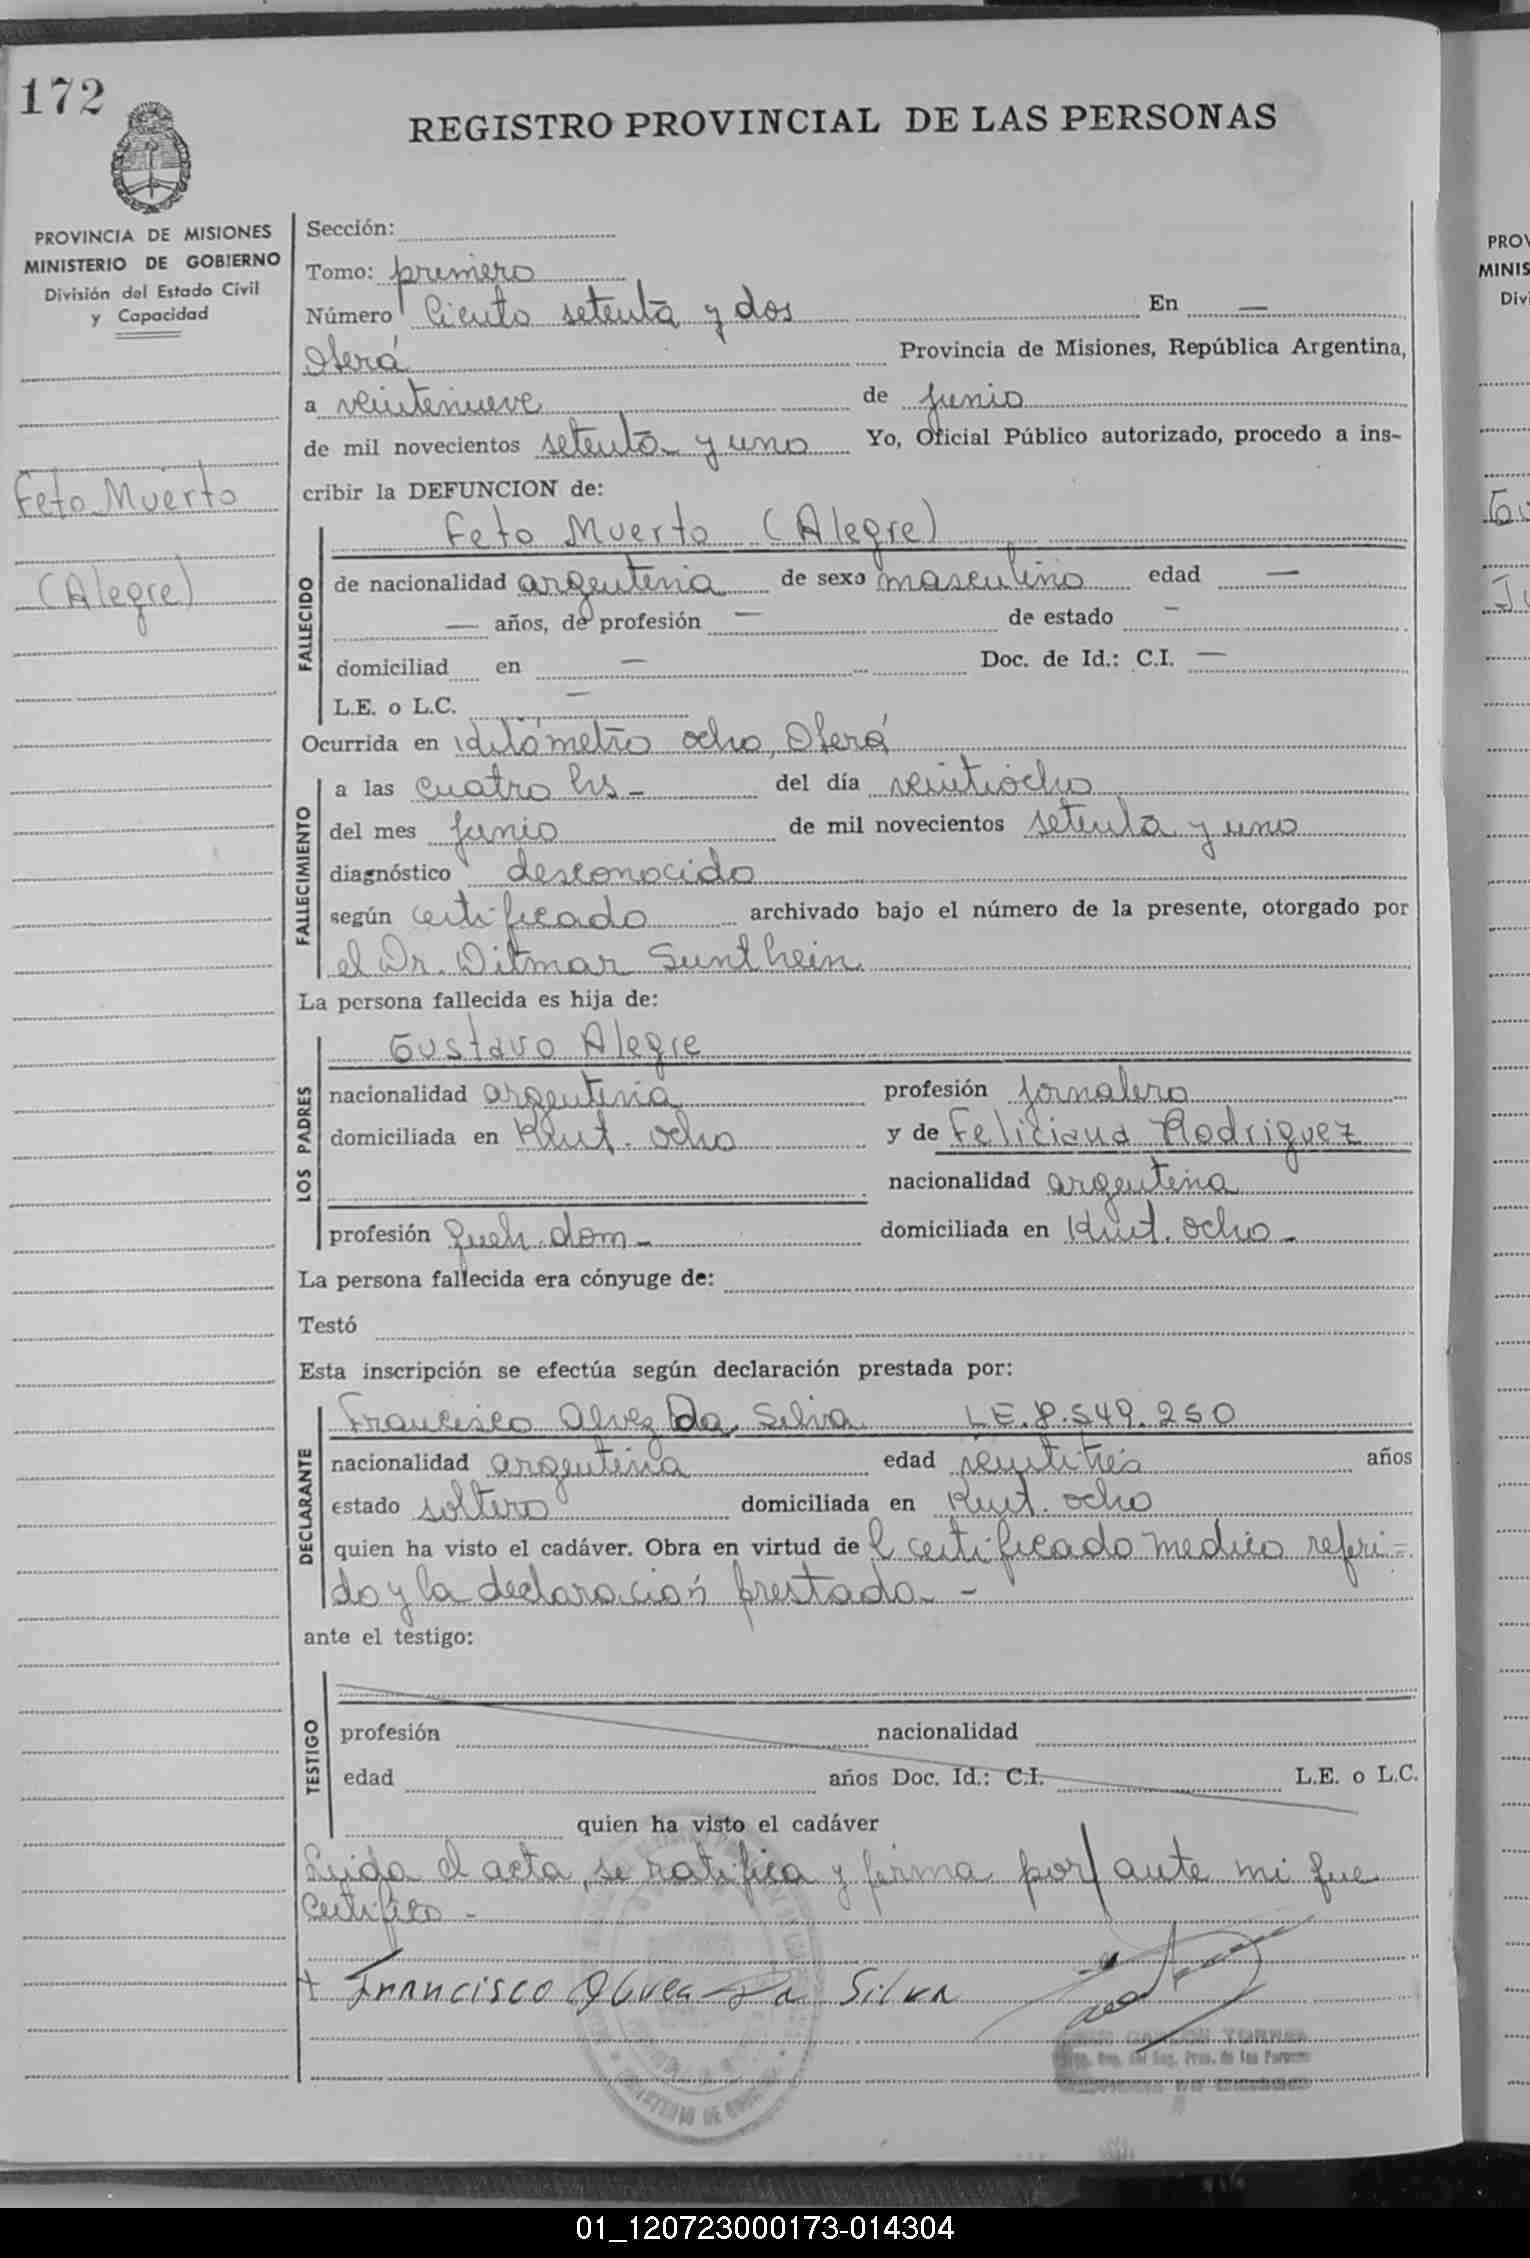 172
REGISTRO PROVINCIAL DE LAS PERSONAS
PROVINCIA DE MISIONES
MINISTERIO DE GOBIERNO
División del Estado Civil
y Capacidad
Feto Muerto
(Alegre)
Sección:
Tomo: primero
Número Ciento setenta y dos En —
Oberá Provincia de Misiones, República Argentina,
a veintenueve de junio
de mil novecientos setenta y uno Yo, Oficial Público autorizado, procedo a ins-
cribir la DEFUNCION de:
FALLECIDO
Feto Muerto (Alegre)
de nacionalidad argentina de sexo masculino edad —
— años, de profesión — de estado —
domiciliad en — Doc. de Id.: C.I. —
L.E. o L.C. —
Ocurrida en kilómetro ocho, Oberá
FALLECIMIENTO
a las cuatro hs - del día veintiocho
del mes junio de mil novecientos setenta y uno
diagnóstico desconocido
según certificado archivado bajo el número de la presente, otorgado por
el Dr. Ditmar Sunthein
La persona fallecida es hija de:
LOS PADRES
Gustavo Alegre
nacionalidad argentina profesión jornalero
domiciliada en Kmt. ocho y de Feliciana Rodriguez
nacionalidad argentina
profesión queh. dom - domiciliada en Kmt. ocho -
La persona fallecida era cónyuge de:
Testó
Esta inscripción se efectúa según declaración prestada por:
DECLARANTE
Francisco Alvez Da Silva LE. 8.549.250
nacionalidad argentina edad veintitrés años
estado soltero domiciliada en Kmt. ocho
quien ha visto el cadáver. Obra en virtud de l certificado medico referi-
do y la declaración prestada -
ante el testigo:
TESTIGO
profesión nacionalidad
edad años Doc. Id.: C.I. L.E. o L.C.
quien ha visto el cadáver
Leida el acta, se ratifica y firma por ante mi que
certifico -
+ Francisco Alves Da Silva
TORRES
PROV
MINIS
Divi
01_120723000173-014304